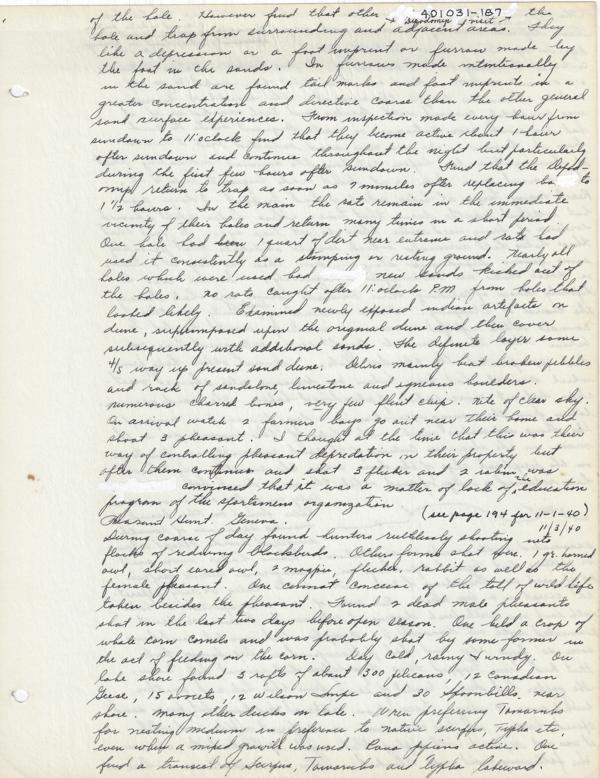 401031-187
of the hole. However find that other & Dipodomys visit the
hole and trap from surrounding and adjacent areas. They
like a depression or a foot imprint or furrow made by
the foot in the sands. In furrows made intentionally
in the sand are found tail marks and foot imprints in a
greater concentration and directive coarse than the other general
sand surface experiences. From inspection made every hour from
sundown to 11 oclock find that they become active about 1 hour
after sundown and continue throughout the night but particularly
during the first few hours after sundown. Find that the Dipod-
omys return to trap as soon as 7 minutes after replacing to
1 1/2 hours. In the main the rats remain in the immediate
vicinity of their holes and return many times in a short period.
One hole had been 1 quart of dirt near entrance and rats had
used it consistently as a stomping or resting ground. Nearly all
holes which were used had new sands kicked out of
the holes. No rats caught after 11:oclock P.M. from holes that
looked likely. Examined newly exposed indian artefacts on
dune, superimposed upon the original dune and then cover
subsequently with additional sands. The definite layer some
4/5 way up present sand dune. Debris mainly heat broken pebbles
and rock of sandstone, limestone and igneous boulders.
numerous charred bones, very few flint chips. Nite of clear sky.
On arrival watch 2 farmers boys go out near their home and
shoot 3 pheasant. I thought at the time that this was their
way of controlling pheasant depredation on their property but
after them continue and shot 3 flicker and 2 robin, was
convinced that it was a matter of lack of education
program of the sportsmens organization
(see page 194 for 11-1-40)
Pheasant Hunt, Geneva. 11/3/40
During coarse of day found hunters ruthlessly shooting into
flocks of redwing blackbirds. Others forms shot were. 1 gr. horned
owl, short eared owl, 2 magpie, flicker, rabbit as well as the
female pheasant. One cannot conceive of the toll of wild life
taken besides the pheasant. Found 2 dead male pheasants
shot in the last two days before open season. One held a crop of
whole corn cornels and was probably shot by some farmer in
the act of feeding on the corn. Day cold, rainy & windy. On
lake shore found 3 rafts of about 300 pelicans, 12 Canadian
Geese, 15 avocets, 12 Wilson snipe and 30 Spoonbills near
shore. Many other ducks on lake. Wren prefering Tamarisks
for nesting medium in preference to native scirpus, Typha etc,
even when a mixed growth was used. Rana pipiens active. One
find a transect of Scirpus, Tamarisks and Typha lakeward.